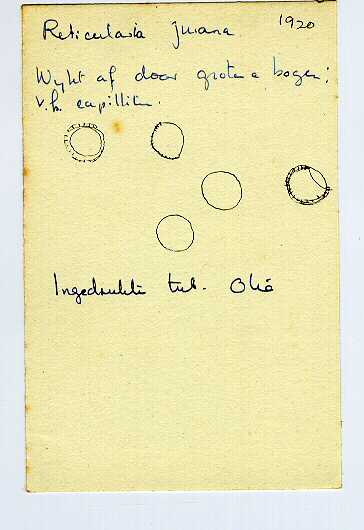 Reticularia jurana 1920
Wijkt af door grotere bogen;
v.h. capillitium.
Ingedrukte tub. Olie